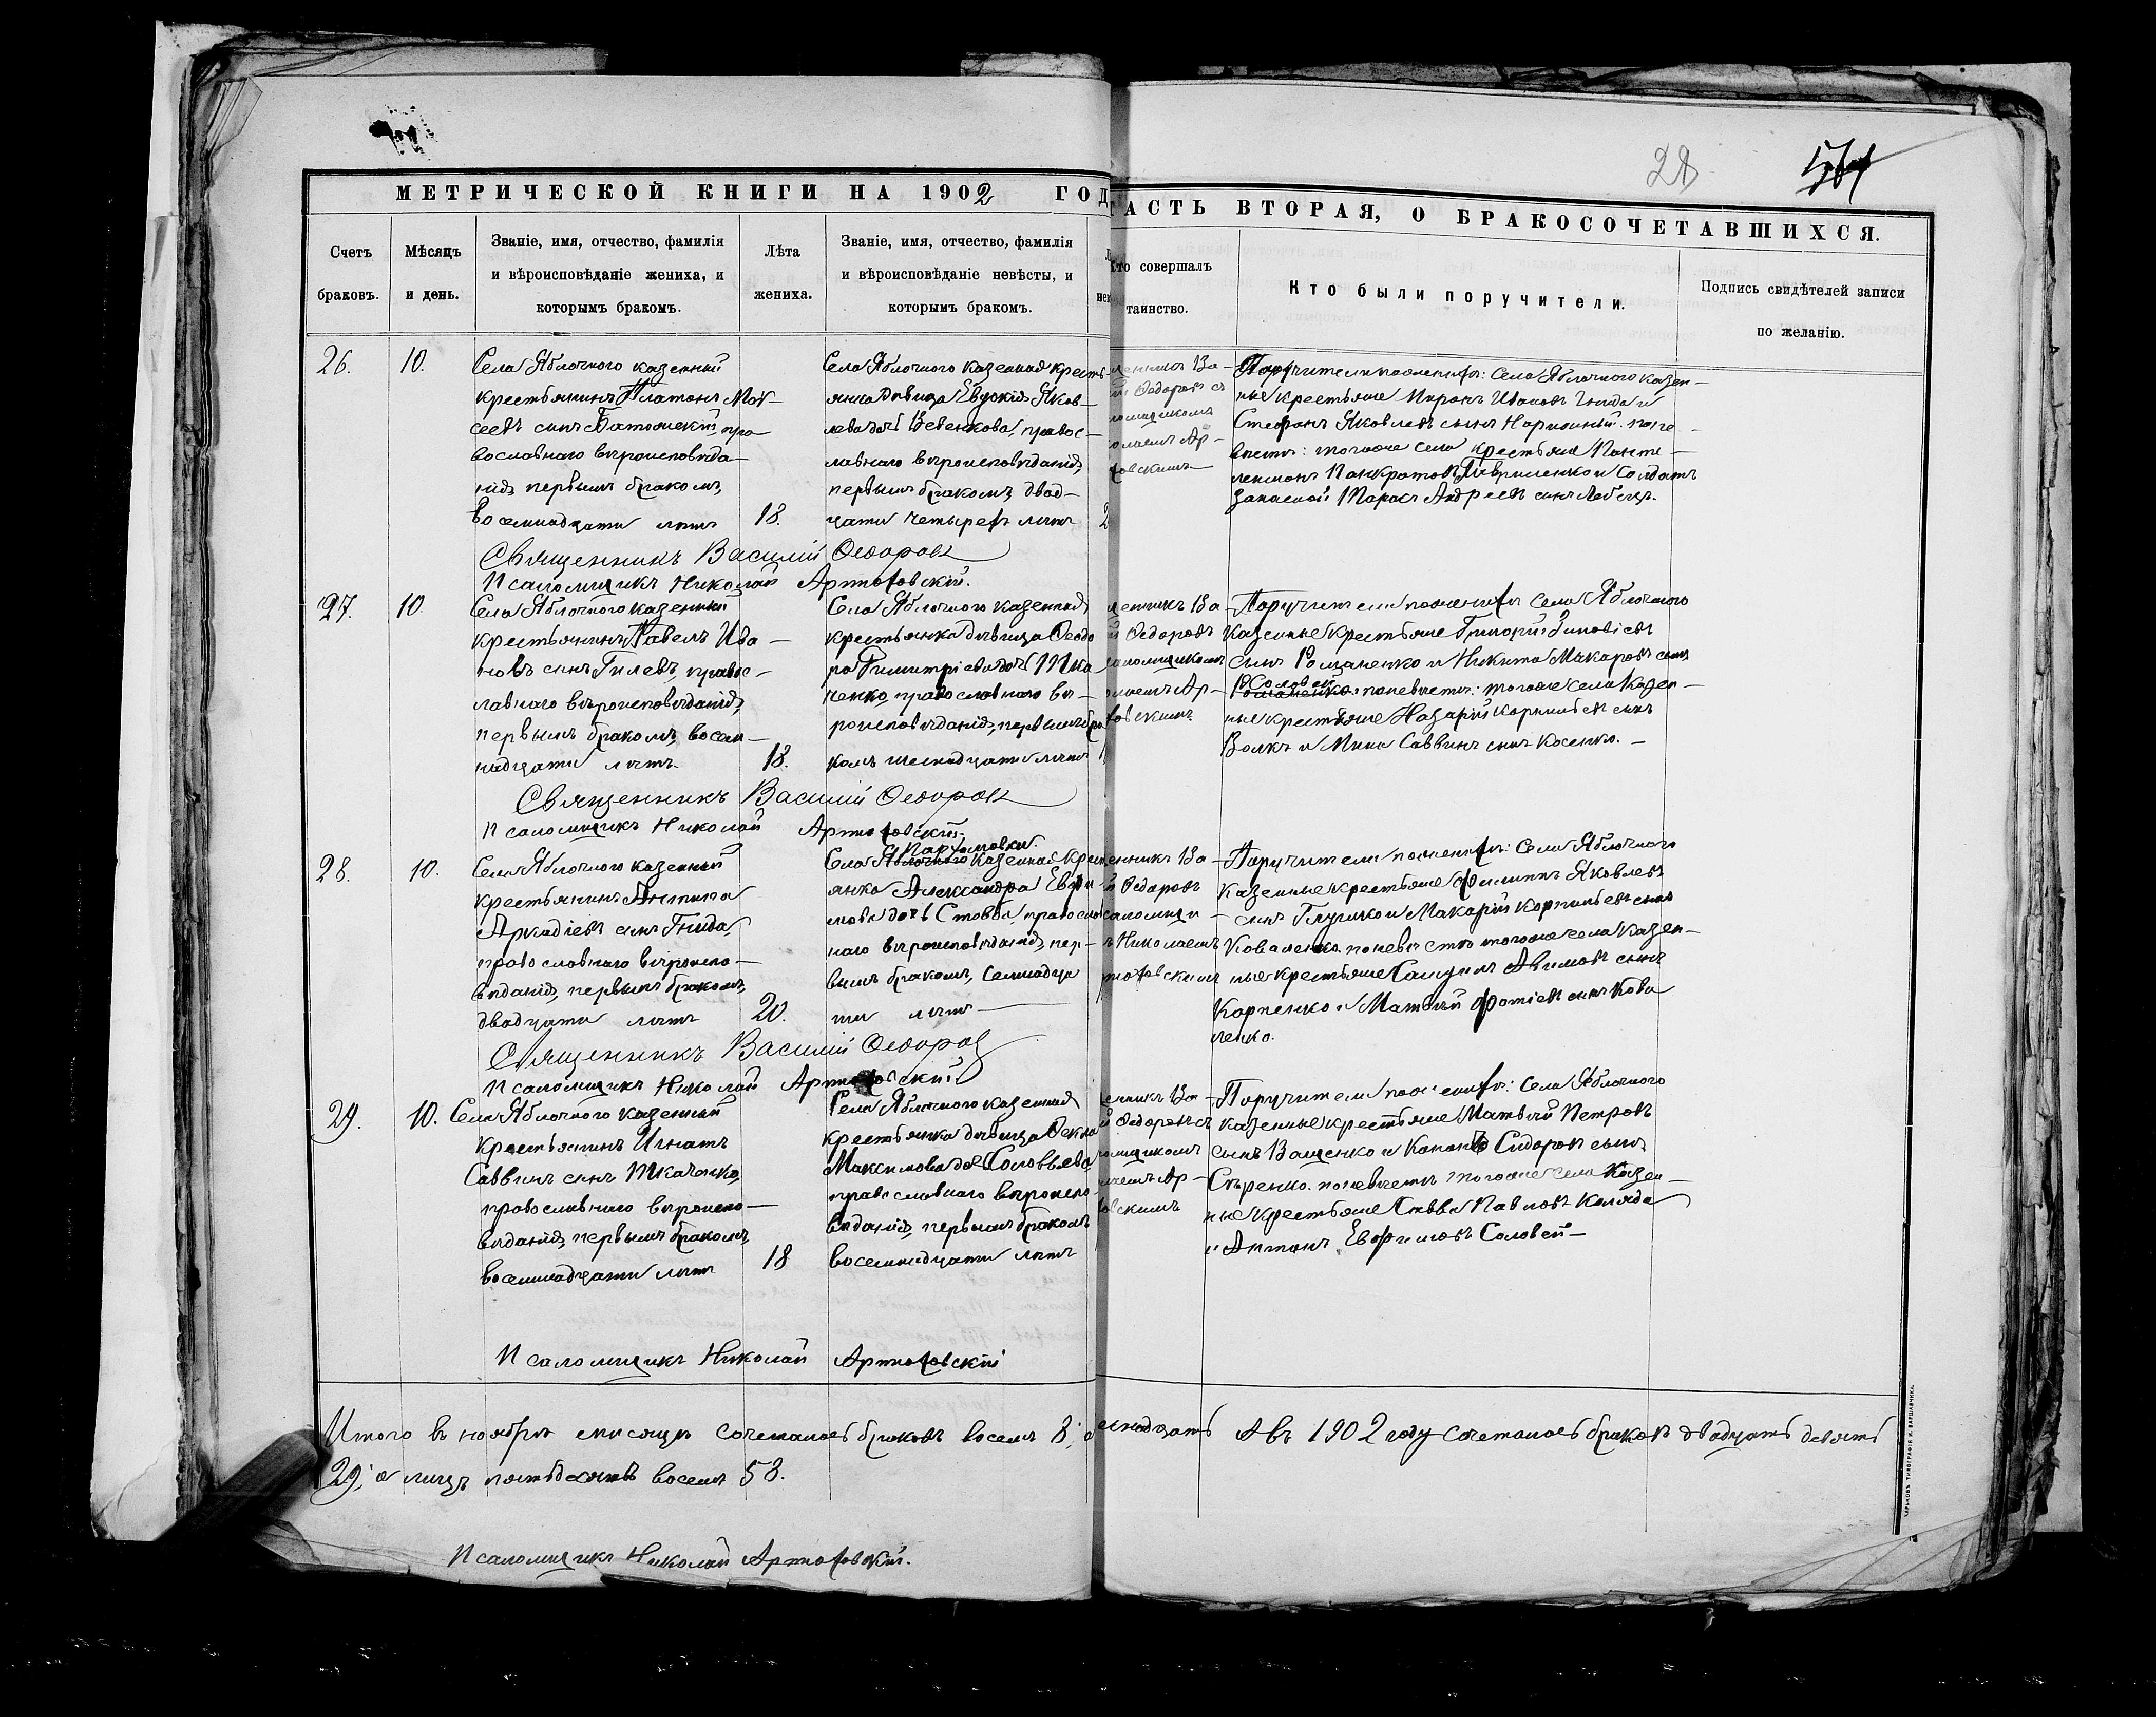 28
МЕТРИЧЕСКОЙ КНИГИ НА 1902 ГОД
ЧАСТЬ ВТОРАЯ, О БРАКОСОЧЕТАВШИХСЯ.
Счетъ
браковъ.
Мѣсяцъ
и день.
Званіе, имя, отчество, фамилія
и вѣроисповѣданіе жениха, и
которымъ бракомъ.
Лѣта
жениха.
Званіе, имя, отчество, фамилія
и вѣроисповѣданіе невѣсты, и
которымъ бракомъ.
Кто совершалъ
таинство.
Кто были поручители.
Подпись свидѣтелей записи
по желанію.
26.
10.
Села Яблочного казенный
крестьянинъ Платонъ Мои-
сеевъ сынъ пра
вославнаго вѣроисповѣда-
нія, первымъ бракомъ,
восемнадцати лѣтъ
18.
Села Яблочного казенная кресть-
янка дѣвица Евдокія Яков-
лева дочь правос-
лавнаго вѣроисповѣданія,
первымъ бракомъ, двад-
цати четырехъ лѣтъ
2
щенникъ Ва-
й Ѳедоровъ съ
ломщикомъ
олаемъ Ар-
овскимъ
Поручители по женихѣ: Села Яблочного казен-
ные крестьяне Миронъ Ивановъ Гнида и
Стефанъ Яковлевъ сынъ по не-
вѣстѣ: того же села крестьяне Панте-
леимонъ Панкратовъ Гавриленко и Солдатъ
запасной Андреевъ сынъ
Священникъ Василій Ѳедоровъ
Псаломщикъ Николай Артюховскій.
27.
10.
Села Яблочного казенный
крестьянинъ Павелъ Ива-
новъ сынъ Гилевъ, правос-
лавнаго вѣроисповѣданія,
первымъ бракомъ, восем-
надцати лѣтъ.
18.
Села Яблочного казенная
крестьянка дѣвица Ѳеодо
ра Димитріева дочь Тка
ченко, православнаго вѣ-
роисповѣданія, первымъ бра
комъ шеснадцати лѣтъ
1
щенникъ Ва-
й Ѳедоровъ
саломщикомъ
олаемъ Ар-
овскимъ
Поручители по женихѣ Села Яблочного
казенные крестьяне Григорій Зиновіевъ
сынъ Рощаненко и Никита Макаровъ сынъ
Соловей
по невѣстѣ: того же села казен-
ные крестьяне Назарій Корнильевъ сынъ
Волкъ и Саввинъ сынъ Косенко.-
Священникъ Василій Ѳедоровъ
Псаломщикъ Николай Артюховскій.
28.
10.
Села Яблочного казенный
крестьянинъ Антипа
Аркадіевъ сынъ Гнида,
православнаго вѣроиспо-
вѣданія, первымъ бракомъ,
двадцати лѣтъ
20.
Пархомовки.
Села Яблочного казенная крест
янка Александра Ефи
мова дочь Стовба, правосла
наго вѣроисповѣданія, пер-
вымъ бракомъ, семнадца
ти лѣтъ
енникъ Ва-
й Ѳедоровъ
саломщи-
ъ Николаемъ
ртюховскимъ
Поручители по женихѣ: Села Яблочного
казенные крестьяне Филиппъ Яковлевъ
сынъ Глушко и Макарій Корнильевъ сынъ
Коваленко. по невѣстѣ того же села казен-
ные крестьяне Самуилъ сынъ
Карпенко и Матвѣй Фотіевъ сынъ Кова
ленко.
Священникъ Василій Ѳедоровъ
Псаломщикъ Николай Артюховскій
29.
10.
Села Яблочного казенный
крестьянинъ Игнатъ
Саввинъ сынъ Ткаченко,
православнаго вѣроиспо-
вѣданія, первымъ бракомъ,
восемнадцати лѣтъ
18
Села Яблочного казенная
крестьянка дѣвица Ѳекла
Максимова дочь Соловьева,
православнаго вѣроиспо-
вѣданія, первымъ бракомъ
восемнадцати лѣтъ
енникъ Ва-
й Ѳедоровъ съ
ломщикомъ
лаемъ Ар-
овскимъ
Поручители по женихѣ: Села Яблочного
казенные крестьяне Матвѣй Петровъ
сынъ Ващенко и Кононъ Сидоровъ сынъ
Сѣренко. по невѣстѣ того же села казен-
ные крестьяне Савва Павловъ Коляда
и Антонъ Евфимовъ Соловей-
Псаломщикъ Николай Артюховскій
Итого въ ноябрѣ мѣсяцѣ сочеталось браковъ восемь 8; естнадцать А въ 1902 году сочеталось браковъ двадцать девять
29; а лицъ пятьдесятъ восемь 58.
Псаломщикъ Николай Артюховскій.